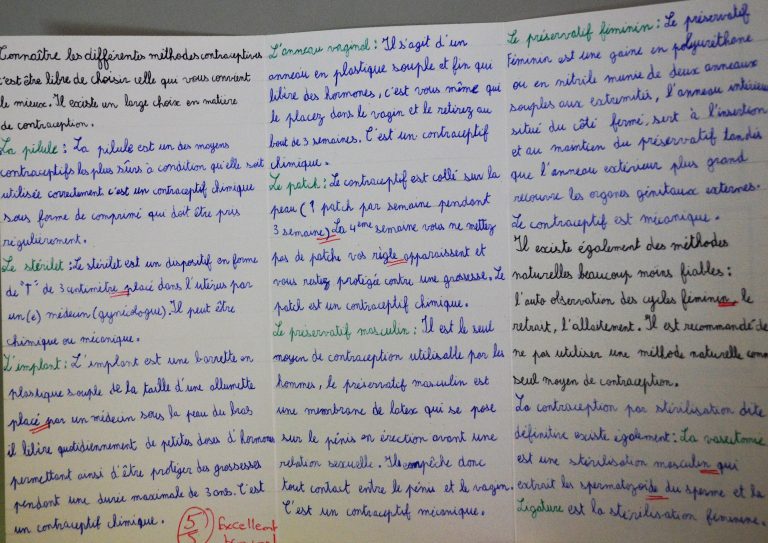 Connaître les différentes méthodes contraceptives
c'est être libre de choisir celle qui vous convient
le mieux. Il existe un large choix en matière
de contraception.
La pilule : La pilule est un des moyens
contraceptifs les plus sûrs à condition qu'elle soit
utilisée correctement c'est un contraceptif chimique
sous forme de comprimé qui doit être pris
régulièrement.
Le stérilet : Le stérilet est un dispositif en forme
de "T" de 3 centimètre placé dans l'utérus par
un(e) médecin (gynécologue). Il peut être
chimique ou mécanique.
L'implant : L'implant est une barrette en
plastique souple de la taille d'une allumette
placé par un médecin sous la peau du bras
il libère quotidiennement de petites doses d'hormones
permettant ainsi d'être protéger des grossesses
pendant une durée maximale de 3 ans. C'est
un contraceptif chimique.
5/5 Excellent
L'anneau vaginal : Il s'agit d'un
anneau en plastique souple et fin qui
libère des hormones, c'est vous même qui
le placez dans le vagin et le retirez au
bout de 3 semaines. C'est un contraceptif
chimique.
Le patch : Le contraceptif est collé sur la
peau (1 patch par semaine pendant
3 semaine) La 4ème semaine vous ne mettez
pas de patchs vos règle apparaissent et
vous restez protégée contre une grossesse. Le
patch est un contraceptif chimique.
Le préservatif masculin : Il est le seul
moyen de contraception utilisable par les
hommes, le préservatif masculin est
une membrane de latex qui se pose
sur le pénis en érection avant une
relation sexuelle. Il empêche donc
tout contact entre le pénis et le vagin.
C'est un contraceptif mécanique.
Le préservatif féminin : Le préservatif
féminin est une gaine en polyuréthane
ou en nitrile munie de deux anneaux
souples aux extrémités, l'anneau intérieur
situé du côté fermé, sert à l'insertion
et au maintien du préservatif tandis
que l'anneau extérieur plus grand
recouvre les organes génitaux externes.
Le contraceptif est mécanique.
Il existe également des méthodes
naturelles beaucoup moins fiables :
l'auto observation des cycles féminin, le
retrait, l'allaitement. Il est recommandé de
ne pas utiliser une méthode naturelle comme
seul moyen de contraception.
La contraception par stérilisation dite
définitive existe également : La vasectomie
est une stérilisation masculin qui
extrait les spermatozoïde du sperme et la
Ligature est la stérilisation féminine.